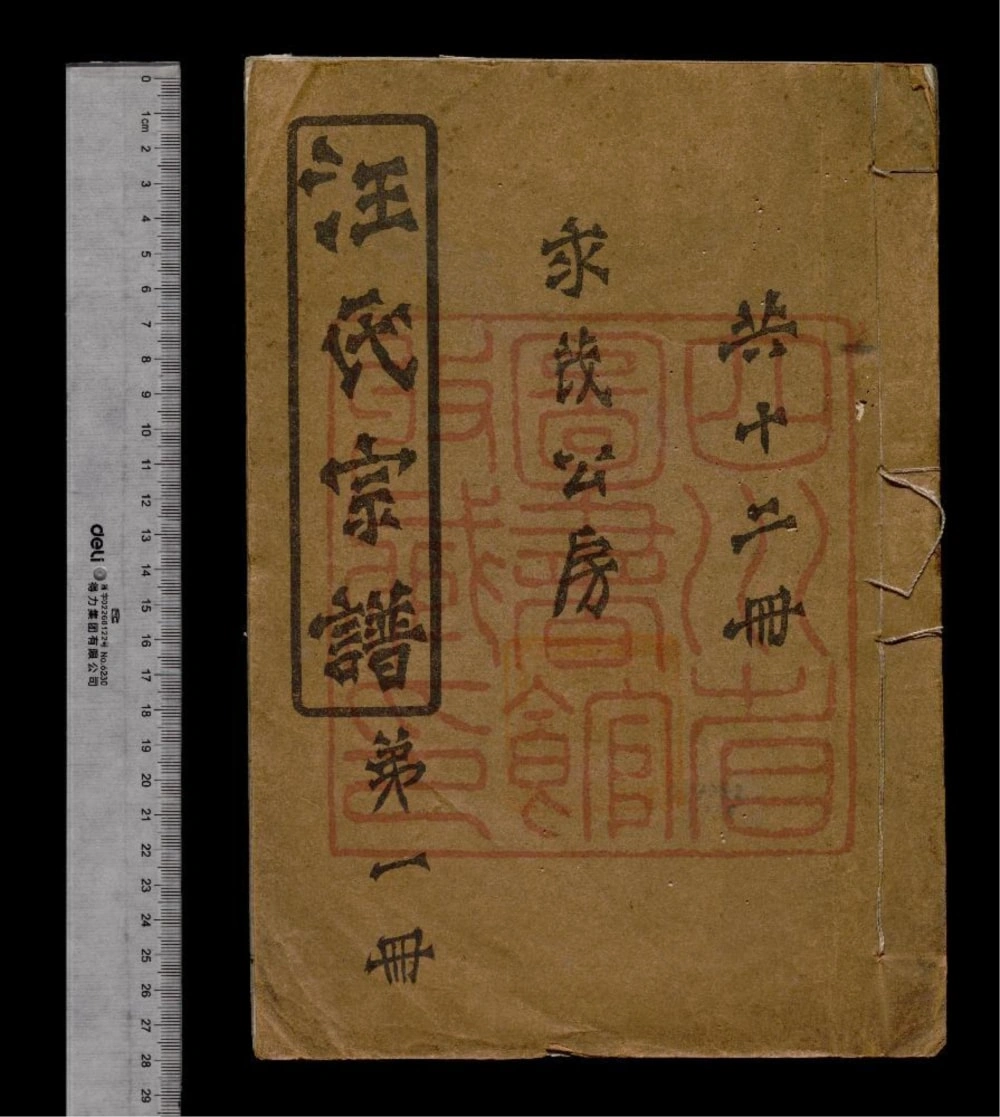 共十二冊
茂公房
汪氏宗譜
第一冊
四川省
圖書館
收藏
0 1cm 2 3 4 5 6 7 8 9 10 11 12 13 14 15 16 17 18 19 20 21 22 23 24 25 26 27 28 29
deli
No.6230
得力集团有限公司